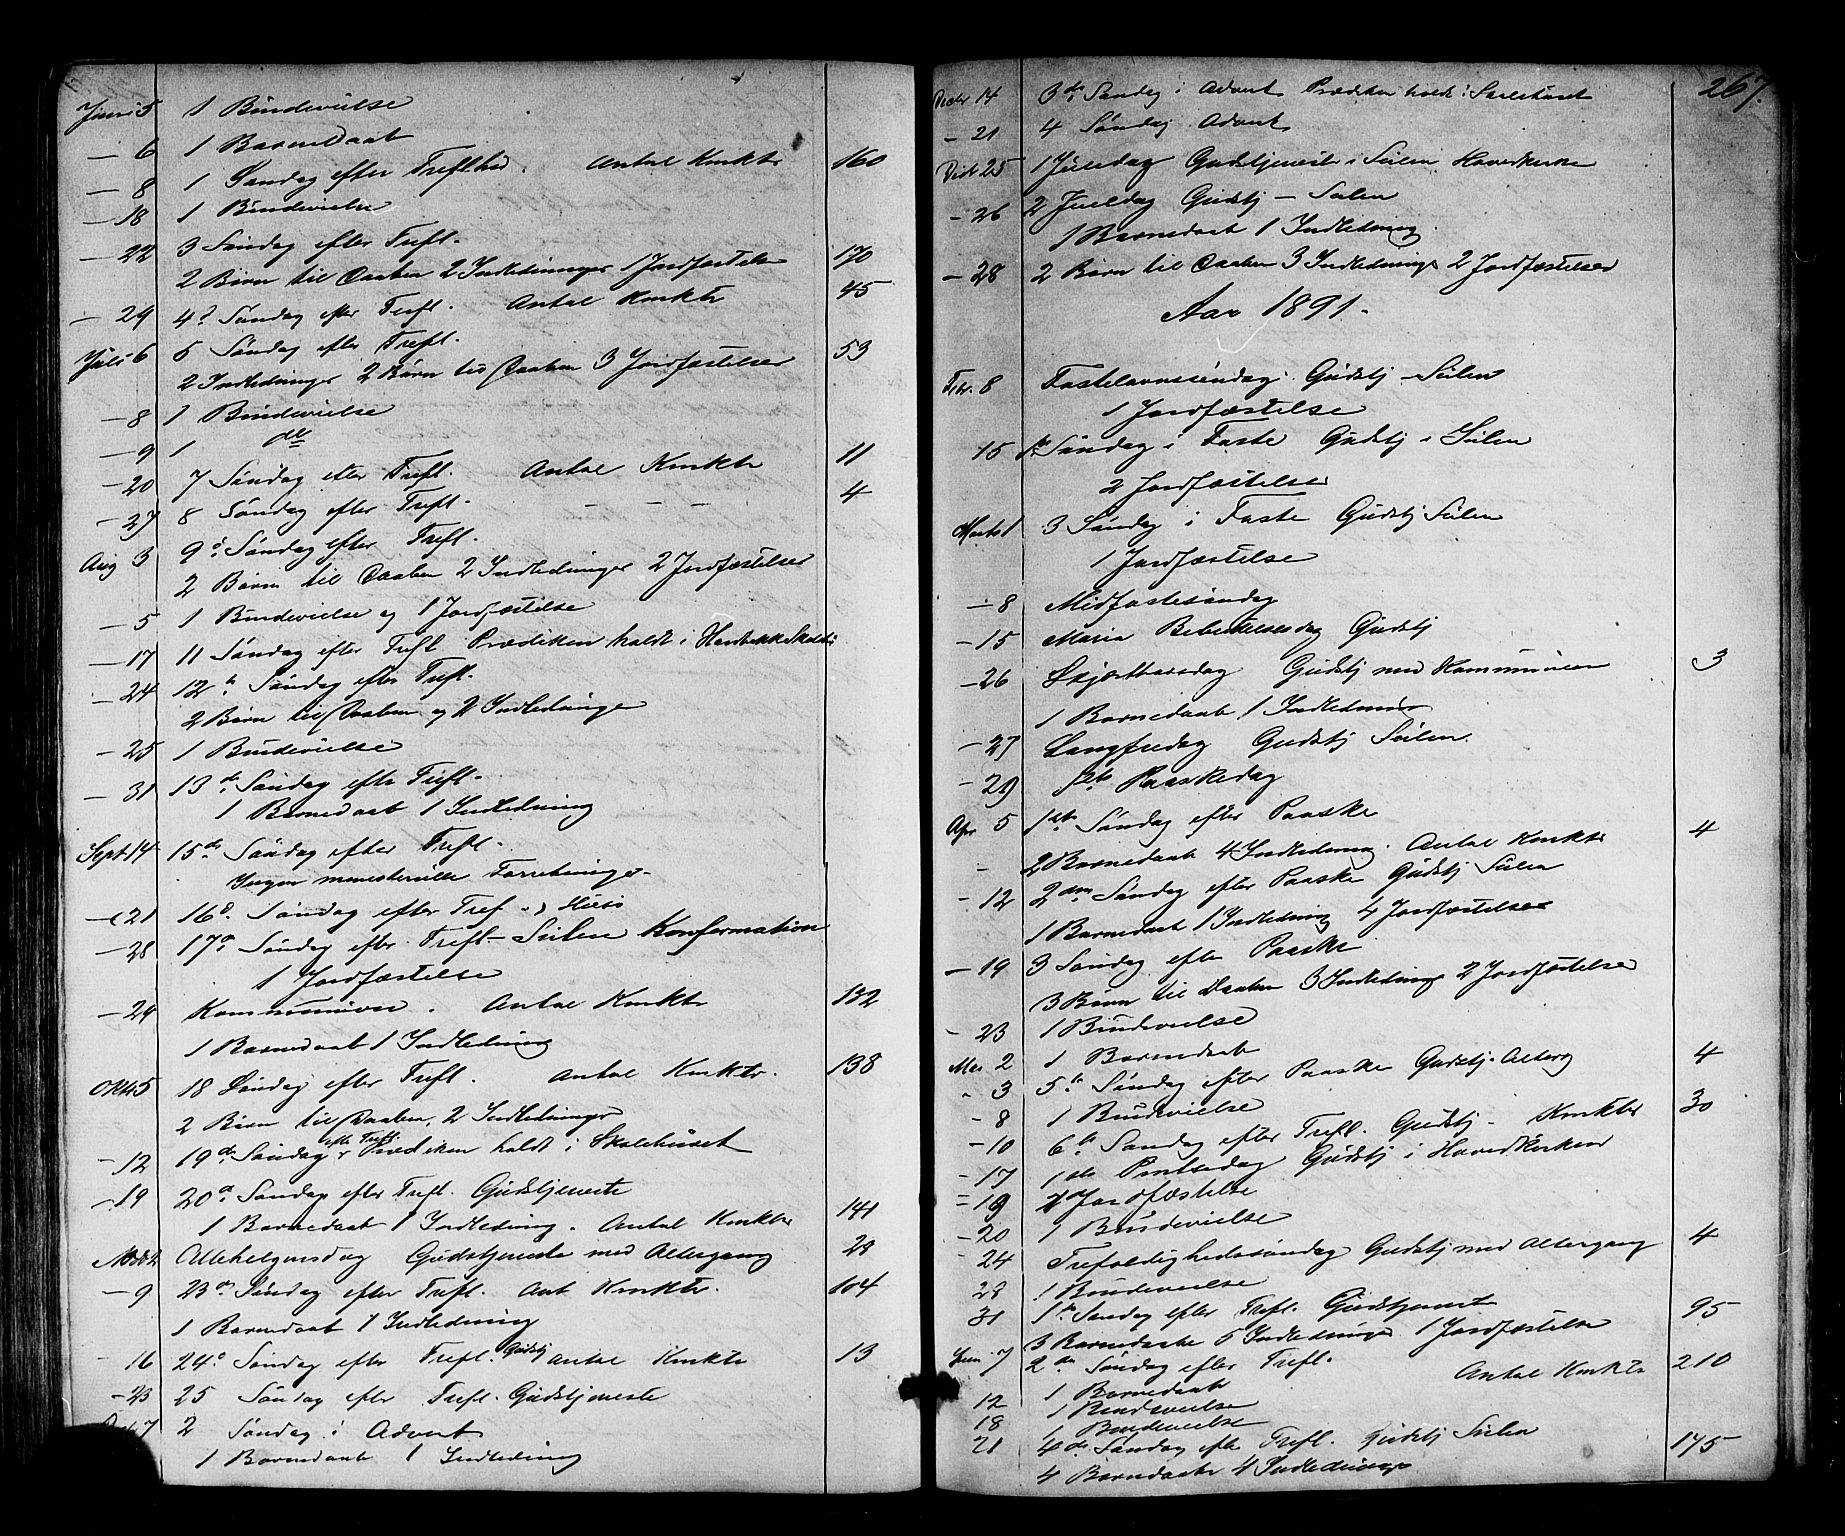 Juni 5 1 Brudevielse
— 6 1 Barnedaab
— 8 1 Søndag efter Treflhd. Antal Kmktr 160
— 18 1 Brudevielse
— 22 3 Søndag efter Trefl.
2 Børn til Daaben 2 Indledninger 1 Jordfæstelse 170
— 29 4d Søndag efter Trefl. Antal Kmktr 45
Juli 6 5 Søndag efter Trefl.
2 Indledninger 2 Børn til Daaben 3 Jordfæstelser 53
— 8 1 Brudevielse
— 9 1 do
— 20 7 Søndag efter Trefl. Antal Kmktr 11
— 27 8 Søndag efter Trefl. — — — 4
Aug 3 9d Søndag efter Trefl.
2 Børn til Daaben 2 Indledninger 2 Jordfæstelser
— 5 1 Brudevielse og 1 Jordfæstelse
— 17 11 Søndag efter Trefl Prædiken holdt i
— 24 12te Søndag efter Trefl.
2 Børn til Daaben og 2 Indledninge
— 25 1 Brudevielse
— 31 13de Søndag efter Trefl.
1 Barnedaab 1 Indledning
Sept 14 15de Søndag efter Trefl.
Ingen ministerielle Forretninger
— 21 16d. Søndag efter Tref
— 28 17d Søndag efter Trefl — Sulen Konformation
1 Jordfæstelse
— 29 Kommunion. Antal Kmktr 132
1 Barnedaab 1 Indledning
Oktb 5 18 Søndag efter Trefl. Antal Kmktr. 138
2 Børn til Daaben, 2 Indledninger
— 12 19de Søndag efter Trefl. Prædiken holdt i Skolehuset
— 19 20d Søndag efter Trefl. Gudstjeneste
1 Barnedaab 1 Indledning. Antal Kmktr 141
Novbr 2 Allehelgensdag Gudstjeneste med Altergang 29
— 9 23de Søndag efter Trefl. Ant Kmktr. 104
1 Barnedaab 1 Indledning
— 16 24d Søndag efter Trefl. Gudstj Antal Kmktr 13
— 23 25 Søndag efter Trefl. Gudstjeneste
7 2 Søndag i Advent
1 Barnedaab 1 Indledning
267.
Decbr 14 3de Søndag i Advent Prædiken holdt i Skolehuset
— 21 4 Søndag Advent
Decb 25 1 Juledag Gudstjeneste i Sulen Hovedkirke
— 26 2 Juledag Gudstj — Sulen
1 Barnedaab 1 Indledning.
— 28 2 Børn til Daaben 3 Indledninge 2 Jordfæstelser
Aar 1891.
Febr. 8 Fastelavnssøndag. Gudstj — Sulen
1 Jordfæstelse
15 1ste Søndag i Faste Gudstj i Sulen
2 Jordfæstelse
Marts 1 3 Søndag i Faste Gudstj Sulen
1 Jordfæstelse
— 8 Midfastesøndag
— 15 Maria Bebudelsesdag Gudstj
— 26 Skjærthorsdag Gudstj med Kommunion 3
1 Barnedaab 1 Indledning
— 27 Langfredag Gudstj Sulen.
— 29 1ste Paaskedag
Apr 5 1ste Søndag efter Paaske
2 Barnedaab 4 Indledning. Antal Kmktr 4
— 12 2den Søndag efter Paaske Gudstj Sulen
1 Barnedaab 1 Indledning 4 Jordfæstelser
— 19 3 Søndag efter Paaske
3 Børn til Daaben 3 Indledninge 2 Jordfæstelse
— 23 1 Brudevielse
Mai 2 1 Barnedaab
- 3 5te Søndag efter Paaske Gudstj. Alterg 4
- 8 1 Brudevielse
— 10 6te Søndag efter Trefl. Gudstj. Kmktr 30
— 17 1ste Pintsedag Gudstj i Hovedkirken
— 19 Jordfæstelse
— 20 1 Brudevielse
— 24 Trefoldighedssøndag Gudstj med Altergang 4
28 1 Brudevielse
31 1ste Søndag efter Trefl. Gudstjeneste
3 Barnedaabe 5 Indledninge 1 Jordfæstelse 95
Juni 7 2den Søndag efter Trefl.
1 Barnedaab Antal Kmktr 210
12 1 Brudevielse
18 1 Brudevielse
21 4de Søndag efter Trefl. Gudstj Sulen 175
4 Barnedaabe 4 Indledninge